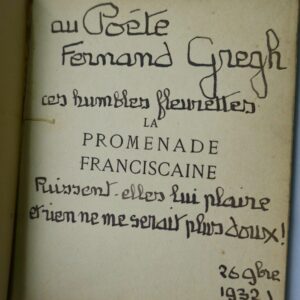 au Poéte
Fernand Gregh
ces humbles fleurettes
LA
PROMENADE
FRANCISCAINE
Puissent-elles lui plaire
et rien ne me serait plus doux!
26 9bre
1932